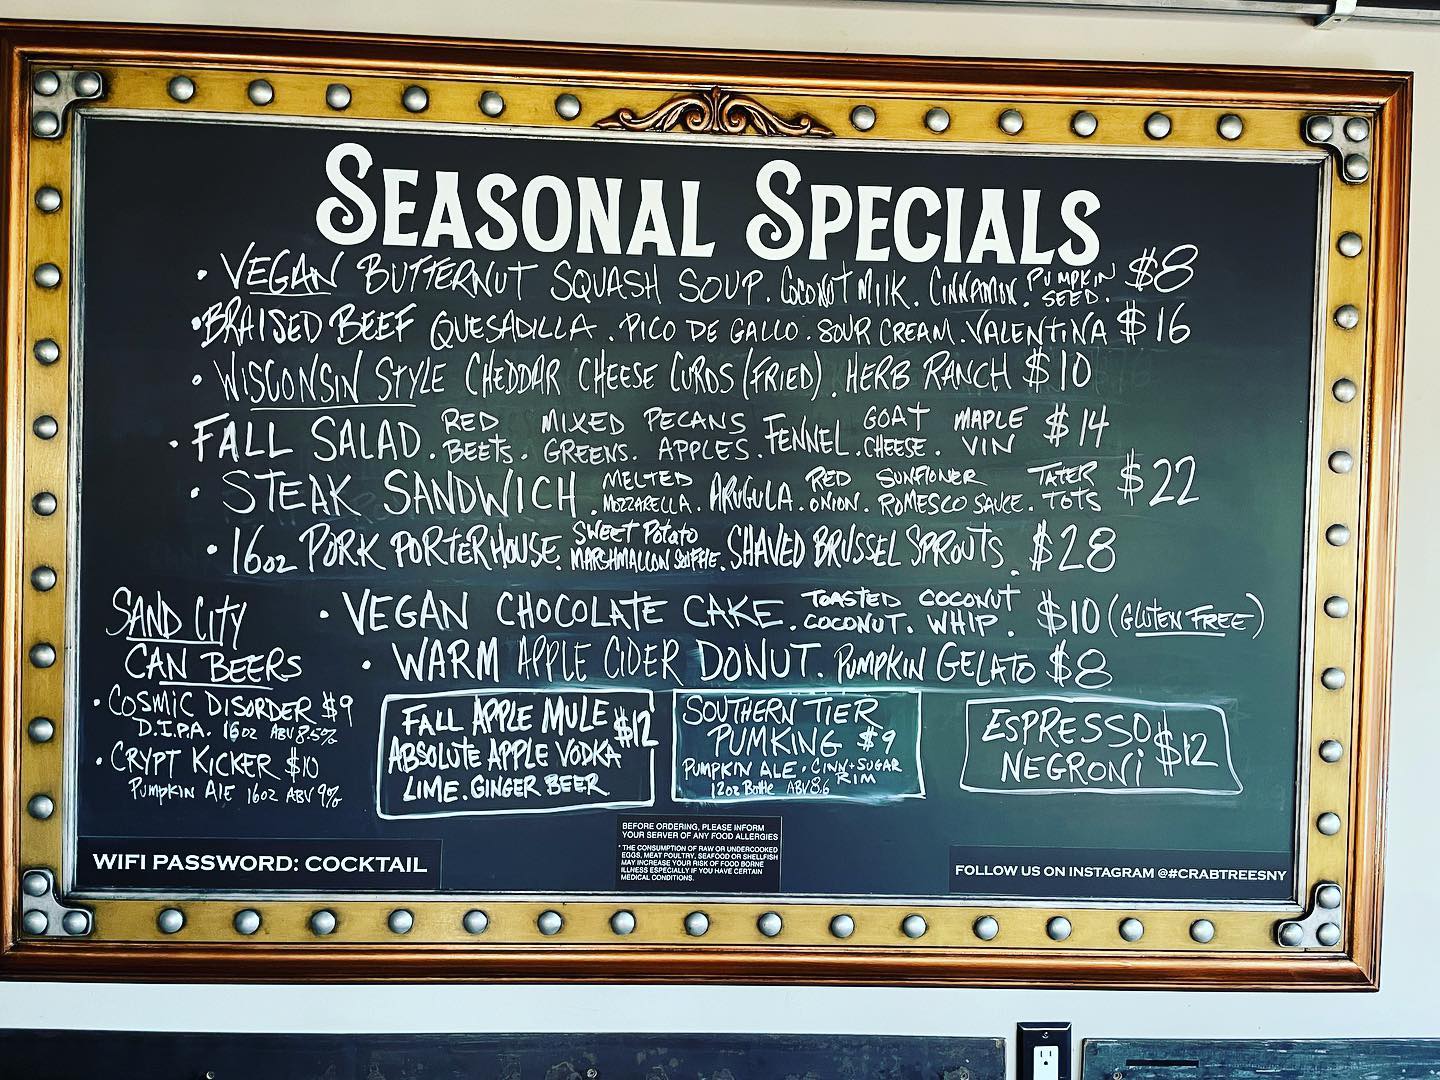 SEASONAL SPECIALS
• VEGAN BUTTERNUT SQUASH SOUP. COCONUT MILK. CINNAMON. PUMPKIN SEED. $8
• BRAISED BEEF QUESADILLA. PICO DE GALLO. SOUR CREAM. VALENTINA $16
• WISCONSIN STYLE CHEDDAR CHEESE CURDS (FRIED). HERB RANCH $10
• FALL SALAD. RED BEETS. MIXED GREENS. PECANS APPLES. FENNEL. GOAT CHEESE. MAPLE VIN $14
• STEAK SANDWICH. MELTED MOZZARELLA. ARUGULA. RED ONION. SUNFLOWER ROMESCO SAUCE. TATER TOTS $22
• 16oz PORK PORTERHOUSE. SWEET POTATO MARSHMALLOW SOUFFLE. SHAVED BRUSSEL SPROUTS. $28
• VEGAN CHOCOLATE CAKE. TOASTED COCONUT. COCONUT WHIP. $10 (GLUTEN FREE)
• WARM APPLE CIDER DONUT. PUMPKIN GELATO $8
SAND CITY
CAN BEERS
• COSMIC DISORDER $9
D.I.P.A. 16oz ABV 8.5%
• CRYPT KICKER $10
PUMPKIN ALE 16oz ABV 9%
FALL APPLE MULE $12
ABSOLUTE APPLE VODKA
LIME. GINGER BEER
SOUTHERN TIER
PUMKING $9
PUMPKIN ALE. CINN+SUGAR RIM
12oz Bottle ABV 8.6
ESPRESSO
NEGRONI $12
WIFI PASSWORD: COCKTAIL
BEFORE ORDERING, PLEASE INFORM
YOUR SERVER OF ANY FOOD ALLERGIES
* THE CONSUMPTION OF RAW OR UNDERCOOKED
EGGS, MEAT POULTRY, SEAFOOD OR SHELLFISH
MAY INCREASE YOUR RISK OF FOOD BORNE
ILLNESS ESPECIALLY IF YOU HAVE CERTAIN
MEDICAL CONDITIONS.
FOLLOW US ON INSTAGRAM @#CRABTREESNY